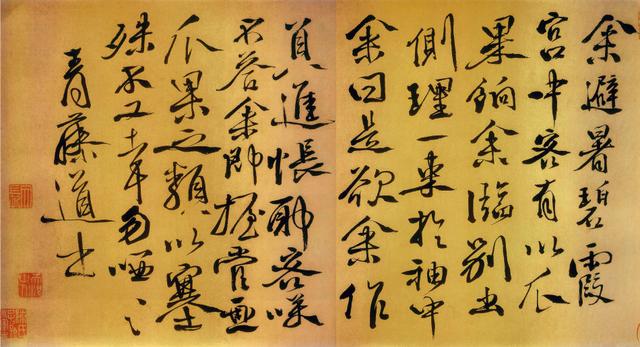 余避暑碧霞
宮中客有以瓜
果餉余臨別出
側理一束於袖中
余曰是欲余作
進帳耶客咲
不答余即握管画
瓜果之類以塞
殊
青藤道士